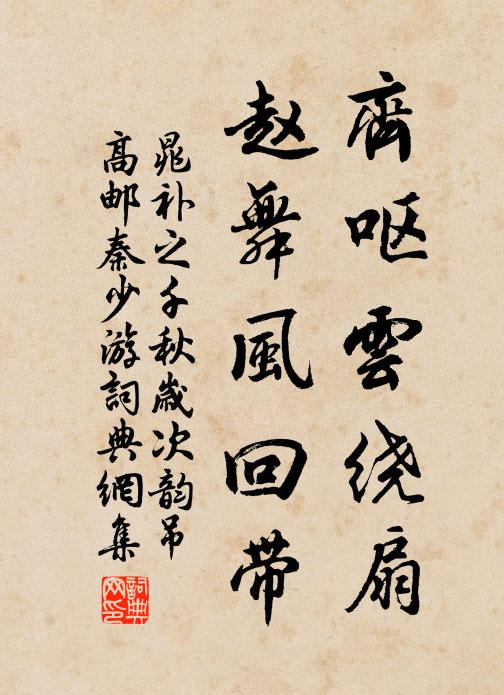 齊呕雲绕扇
赵舞風回带
晁补之千秋歲次韵吊
高邮秦少游詞典網集
詞典网印